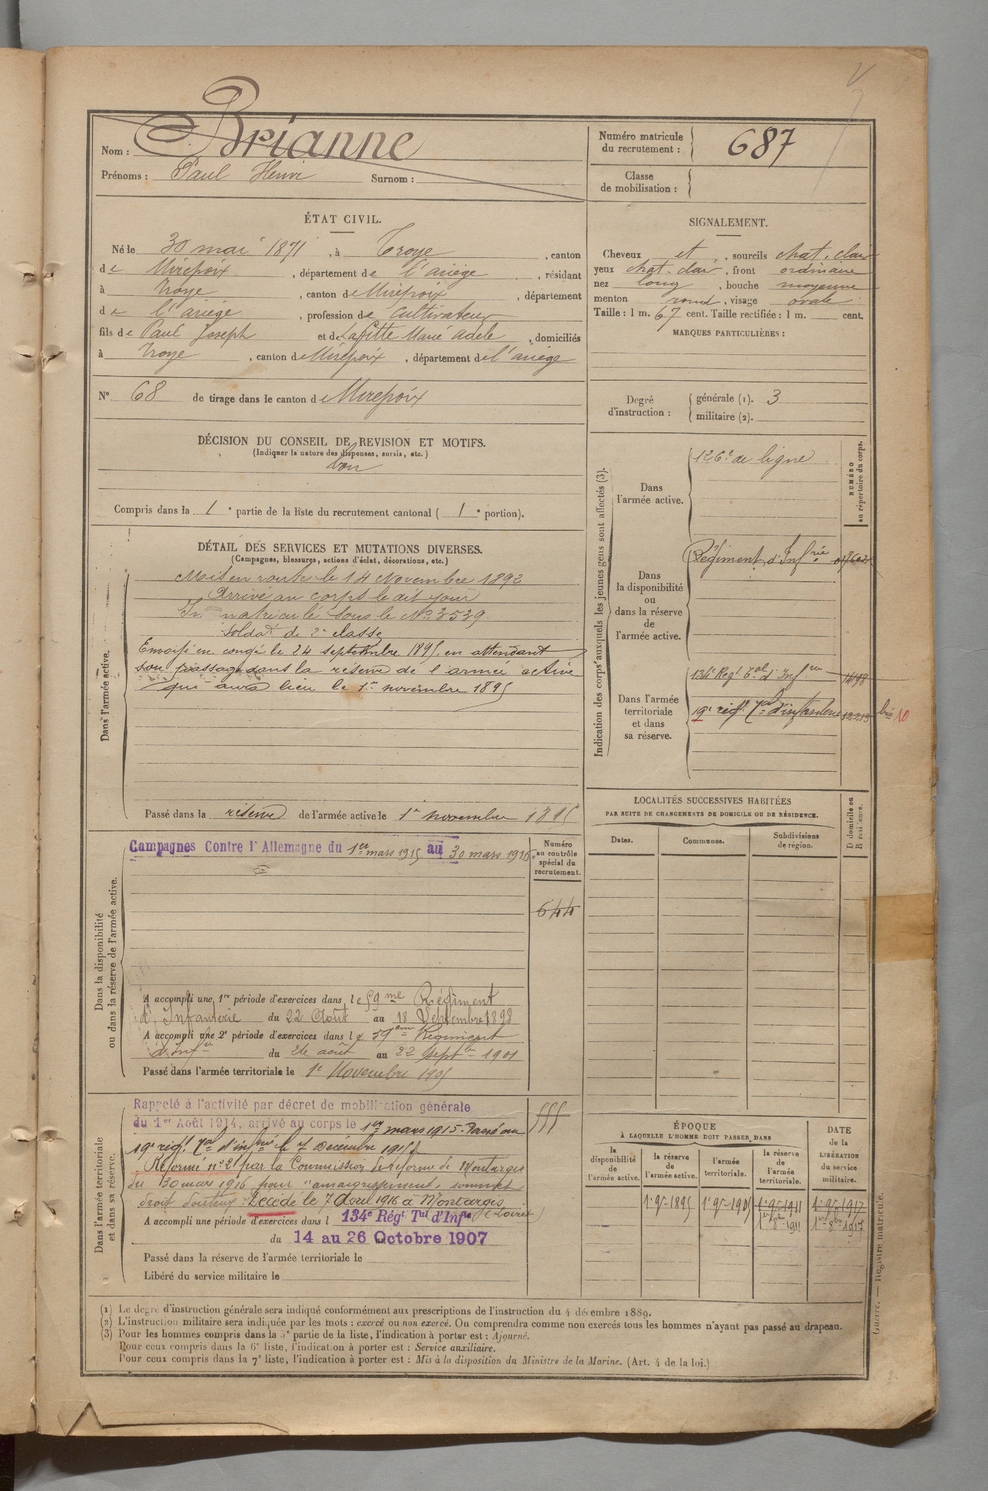 Nom : Brianne
Prénoms : Paul Henri Surnom :
Numéro matricule du recrutement : 687
Classe de mobilisation :
ÉTAT CIVIL.
Né le 30 mai 1871, à Troye, canton
de Mirepoix, département de l'ariège, résidant
à Troye, canton de Mirepoix, département
de l'ariège, profession de Cultivateur
fils de Paul Joseph et de Lafitte Marie adèle, domiciliés
à Troye, canton de Mirepoix, département de l'ariège
N° 68 de tirage dans le canton de Mirepoix
SIGNALEMENT.
Cheveux et, sourcils chat. clair
yeux chat. clair, front ordinaire
nez long, bouche moyenne
menton rond, visage ovale
Taille : 1 m. 67 cent. Taille rectifiée : 1 m. cent.
MARQUES PARTICULIÈRES :
Degré d'instruction : générale (1). 3
militaire (2).
DÉCISION DU CONSEIL DE REVISION ET MOTIFS.
(Indiquer la nature des dispenses, sursis, etc.)
bon
Compris dans la 1e partie de la liste du recrutement cantonal ( 1e portion).
DÉTAIL DES SERVICES ET MUTATIONS DIVERSES.
(Campagnes, blessures, actions d'éclat, décorations, etc.)
Dans l'armée active.
Mis en route le 14 Novembre 1892
Arrivé au corps le dit jour
Immatriculé sous le No 3539
Soldat de 2e classe
Envoyé en congé le 24 septembre 1895 en attendant
son passage dans la réserve de l'armée active
qui aura lieu le 1er novembre 1895
Passé dans la réserve de l'armée active le 1er novembre 1895
Indication des corps auxquels les jeunes gens sont affectés (3).
NUMÉRO au répertoire du corps.
Dans l'armée active.
126e de ligne
Dans la disponibilité ou dans la réserve de l'armée active.
Régiment d'Infrie
Dans l'armée territoriale et dans sa réserve.
134e Régt Tal d'Infrie
19e régt Tal d'infanterie
bis 10
LOCALITÉS SUCCESSIVES HABITÉES
PAR SUITE DE CHANGEMENTS DE DOMICILE OU DE RÉSIDENCE.
Dates. Communes. Subdivisions de région. D domicile ou R résidence.
Dans la disponibilité ou dans la réserve de l'armée active.
Campagnes Contre l'Allemagne du 1er mars 1915 au 30 mars 1916.
Numéro au contrôle spécial du recrutement.
644
A accompli une 1re période d'exercices dans le 59me Régiment
d'Infanterie du 22 Août au 18 Septembre 1898
A accompli une 2e période d'exercices dans le 59eme Régiment
d'Infie du 26 août au 22 septbre 1901
Passé dans l'armée territoriale le 1er Novembre 1905
Dans l'armée territoriale et dans sa réserve.
Rappelé à l'activité par décret de mobilisation générale
du 1er Août 1914, arrivé au corps le 1er mars 1915. Passé au
19e régt Tal d'infrie le 7 Décembre 1915
Réformé no 2 par la Commission de Réforme de Montargis
du 30 mars 1916 pour "amaigrissement,
Décédé le 7 Avril 1916 à Montargis
(Loiret)
A accompli une période d'exercices dans l 134e Régt Tal d'Infie
du 14 au 26 Octobre 1907
Passé dans la réserve de l'armée territoriale le
Libéré du service militaire le
ÉPOQUE
À LAQUELLE L'HOMME DOIT PASSER DANS
la disponibilité de l'armée active.
la réserve de l'armée active.
l'armée territoriale.
la réserve de l'armée territoriale.
DATE de la LIBÉRATION du service militaire.
1er 9bre 1895 1er 9bre 1905 1er 9bre 1911 1er 9bre 1917
1er 8bre 1911 1er 8bre 1917
Guerre. — Registre matricule.
(1) Le degré d'instruction générale sera indiqué conformément aux prescriptions de l'instruction du 4 décembre 1889.
(2) L'instruction militaire sera indiquée par les mots : exercé ou non exercé. On comprendra comme non exercés tous les hommes n'ayant pas passé au drapeau.
(3) Pour les hommes compris dans la 5e partie de la liste, l'indication à porter est : Ajourné.
Pour ceux compris dans la 6e liste, l'indication à porter est : Service auxiliaire.
Pour ceux compris dans la 7e liste, l'indication à porter est : Mis à la disposition du Ministre de la Marine. (Art. 4 de la loi.)